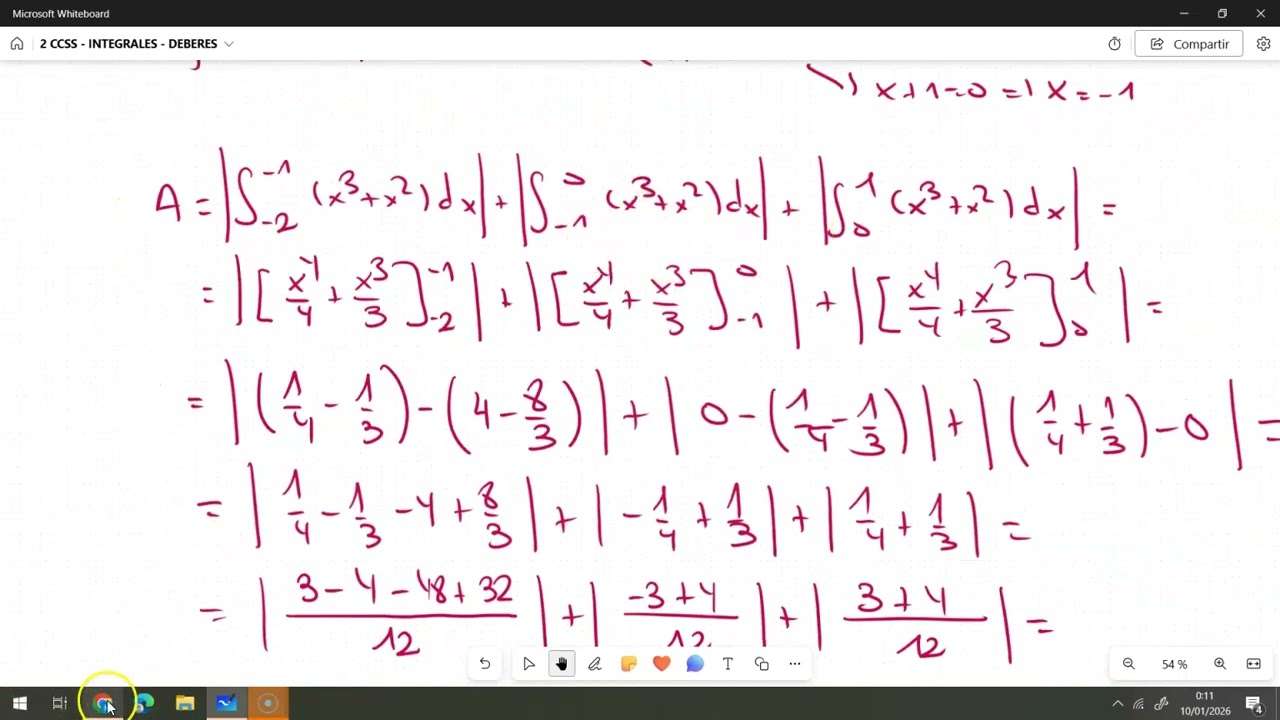 Microsoft Whiteboard
2 CCSS - INTEGRALES - DEBERES
Compartir
x+1=0 => x=-1
A = |∫_{-2}^{-1} (x³+x²)dx| + |∫_{-1}^{0} (x³+x²)dx| + |∫_{0}^{1} (x³+x²)dx| =
= |[x⁴/4 + x³/3]_{-2}^{-1}| + |[x⁴/4 + x³/3]_{-1}^{0}| + |[x⁴/4 + x³/3]_{0}^{1}| =
= |(1/4 - 1/3) - (4 - 8/3)| + |0 - (1/4 - 1/3)| + |(1/4 + 1/3) - 0| =
= |1/4 - 1/3 - 4 + 8/3| + |-1/4 + 1/3| + |1/4 + 1/3| =
= |(3-4-48+32)/12| + |(-3+4)/12| + |(3+4)/12| =
54 %
0:11
10/01/2026
4